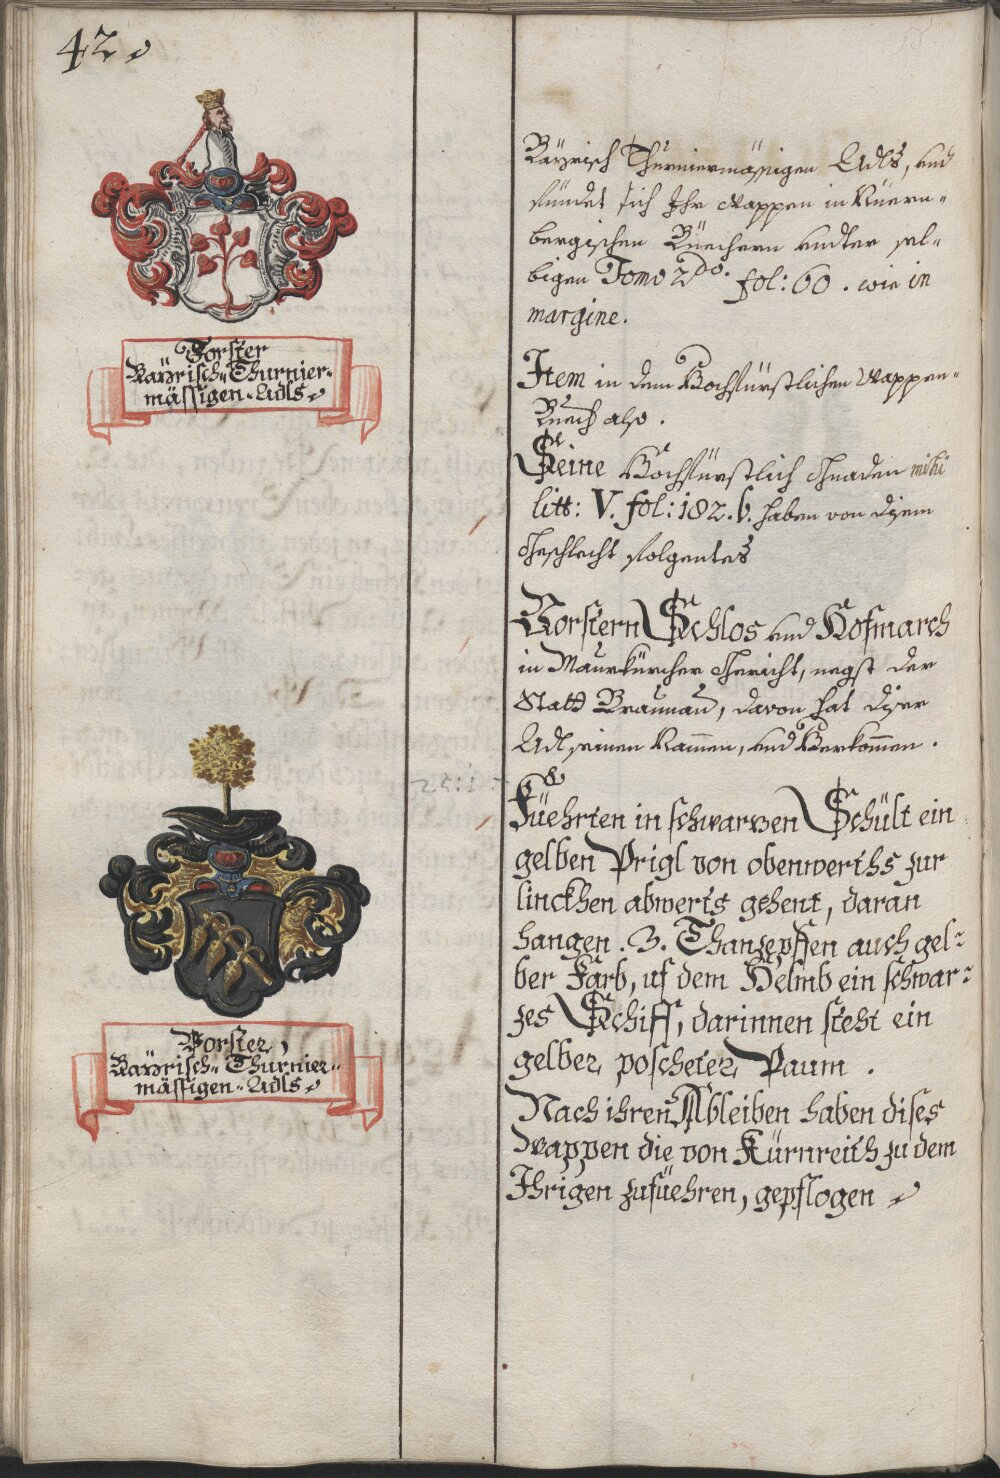 42.
Forster
Bayrisch„ Thurnier-
mässigen„ Adls
Vorster,
Bayrisch„ Thurnier„
mässigen„ Adls
Bayrisch Thurniermässigen Adls, und
findet sich Ihr Wappen in Nüern-
bergischen Büechern undter sel-
bigen Tomo 2do. fol: 60. wie in
margine.
Item in dem Hochfürstlichen Wappen-
Buech also.
Seine Hochfürstlich Gnaden mihi
litt: V. fol: 182. b. haben von disem
Geschlecht folgentes
Vorstern Schlos und Hofmarch
in Maurkürcher Gericht, negst der
Statt Braunau, davon hat diser
Adl seinen Nammen, und Herkommen.
Füehrten in schwarzen Schült ein
gelben Prigl von obenwerths zur
linckhen abwerts gehent, daran
hangen .3. Thanzepffen auch gel-
ber Farb, uf dem Helmb ein schwar-
zes Schiff, darinnen steht ein
gelber poscheter Paum.
Nach ihren Ableiben haben dises
Wappen die von Kürnreith zu dem
Ihrigen zufüehren, gepflogen